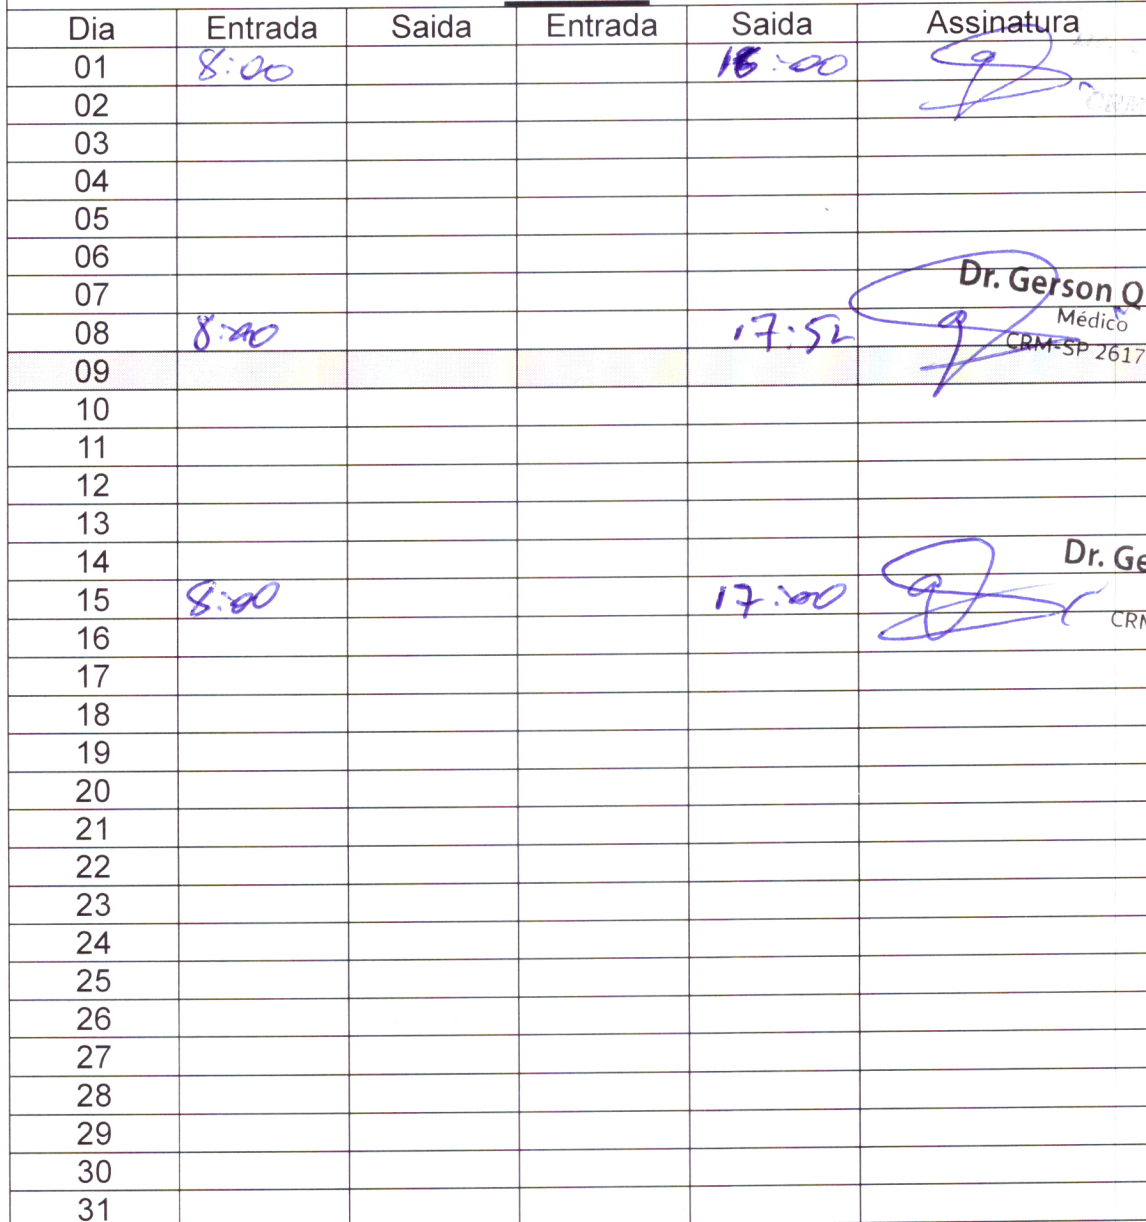 Dia Entrada Saida Entrada Saida Assinatura
01 8:00 16:00
02
03
04
05
06
07 Dr. Gerson Q
Médico
08 8:00 17:52
CRM-SP 2617
09
10
11
12
13
14 Dr. Ge
15 8:00 17:00
CRM
16
17
18
19
20
21
22
23
24
25
26
27
28
29
30
31